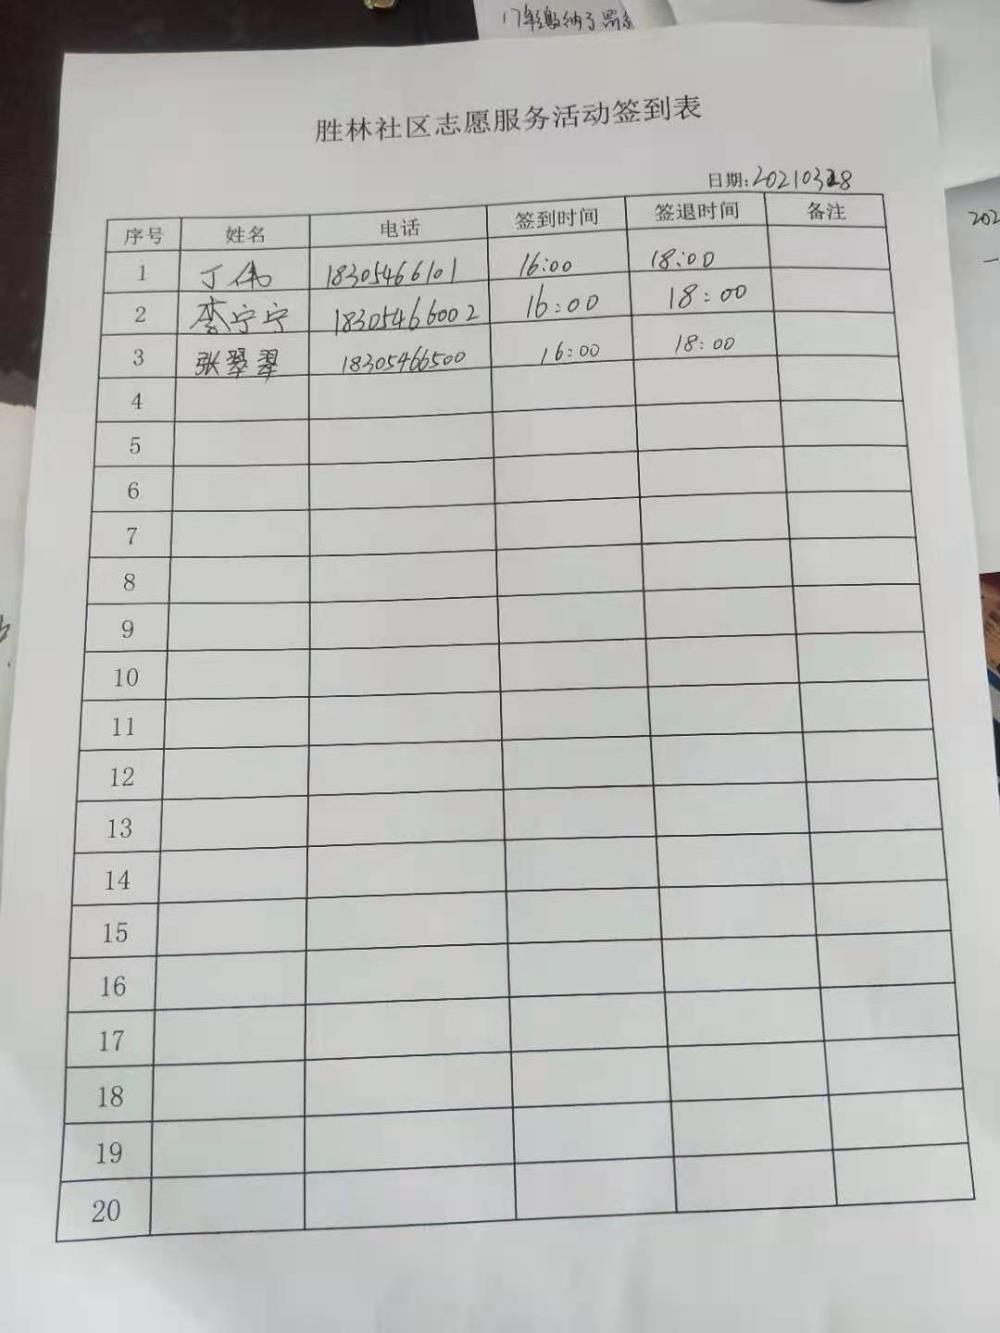 17年缴纳了罚
胜林社区志愿服务活动签到表
日期:20210328
202
序号 姓名 电话 签到时间 签退时间 备注
1 丁伟 18305466101 16:00 18:00
2 李宁宁 18305466002 16:00 18:00
3 张翠翠 18305466500 16:00 18:00
4
5
6
7
8
9
10
11
12
13
14
15
16
17
18
19
20